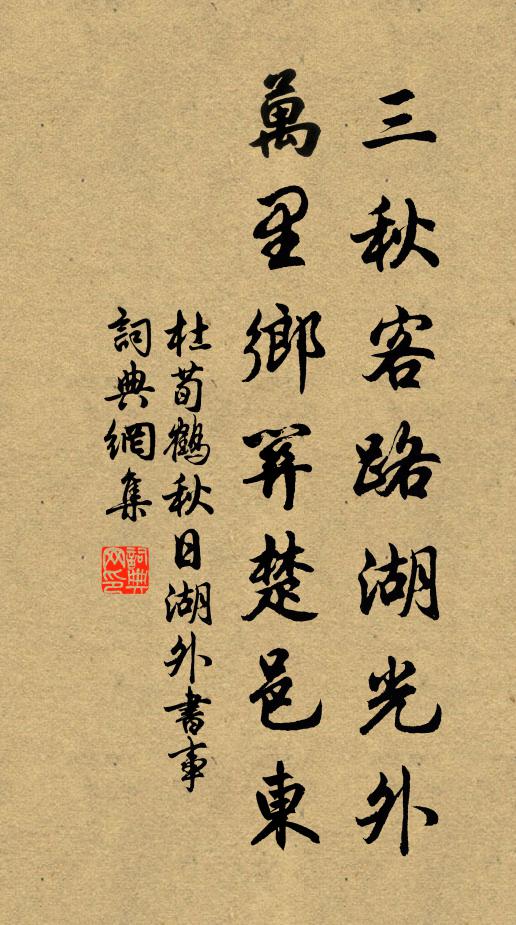 三秋客路湖光外
萬里鄉關楚邑東
杜荀鶴秋日湖外書事
詞典網集
詞典
网印